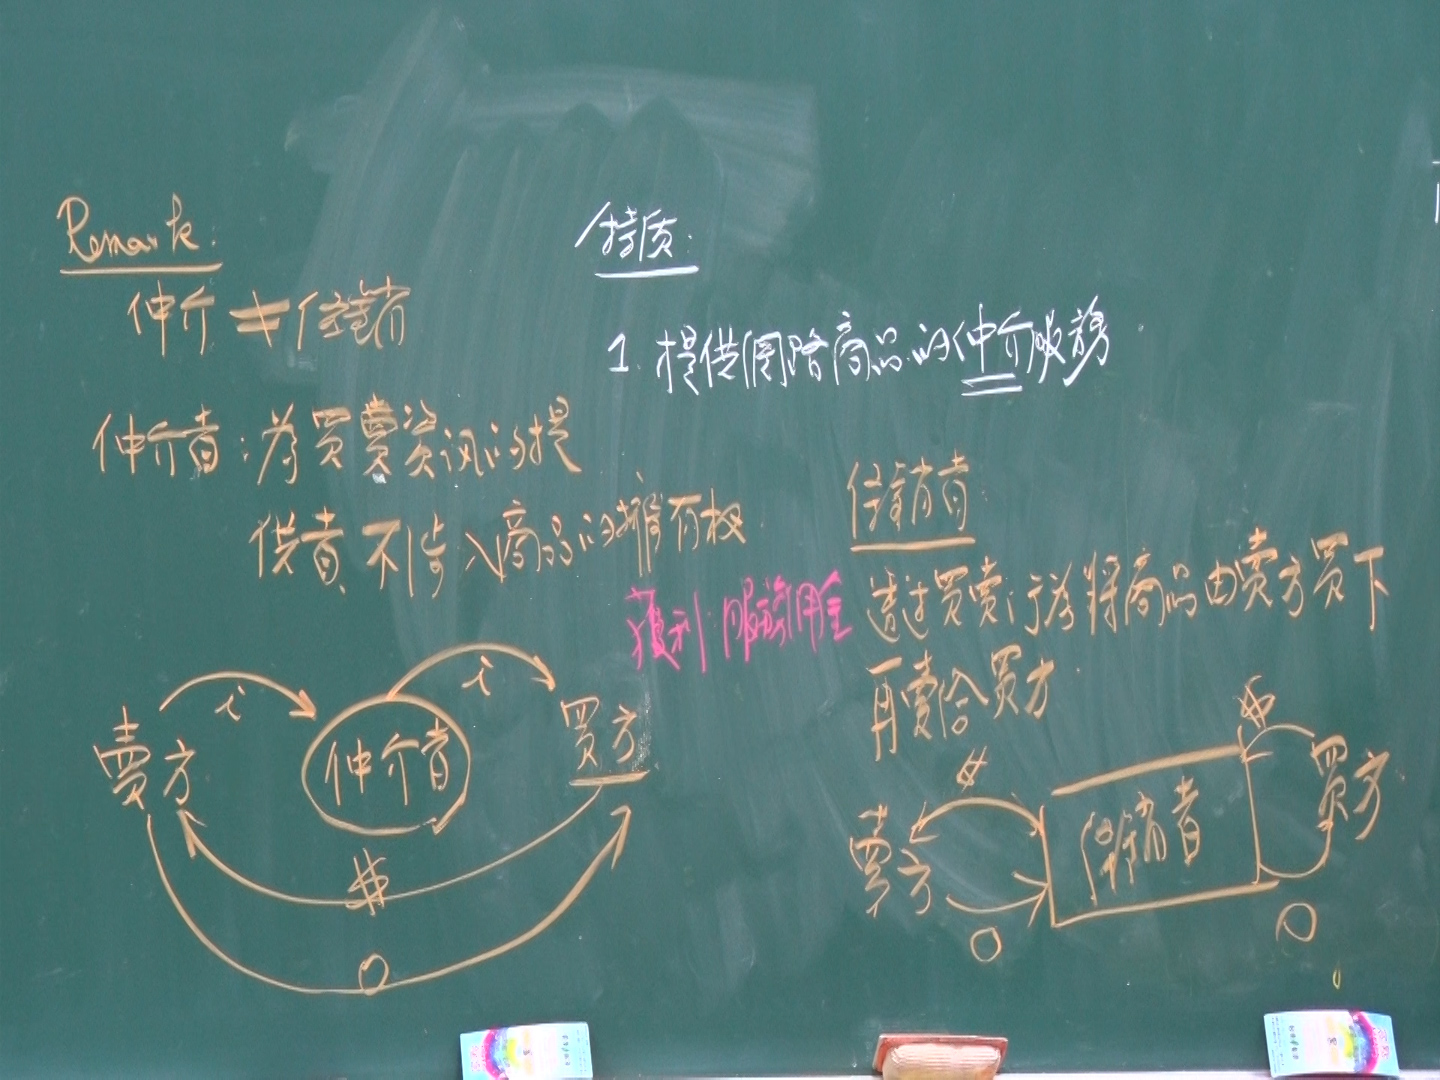 Remark:
仲介≠經銷者
仲介者:為買賣資訊的提
供者,不涉入商品的擁有權
i
i
賣方
仲介者
買方
$
O
特质:
1. 提供网路商品的仲介服務.
獲利:服務佣金
經銷者:
透过買賣行為將商品由賣方買下
再賣给買方.
$
賣方
O
經銷者
$
買方
O